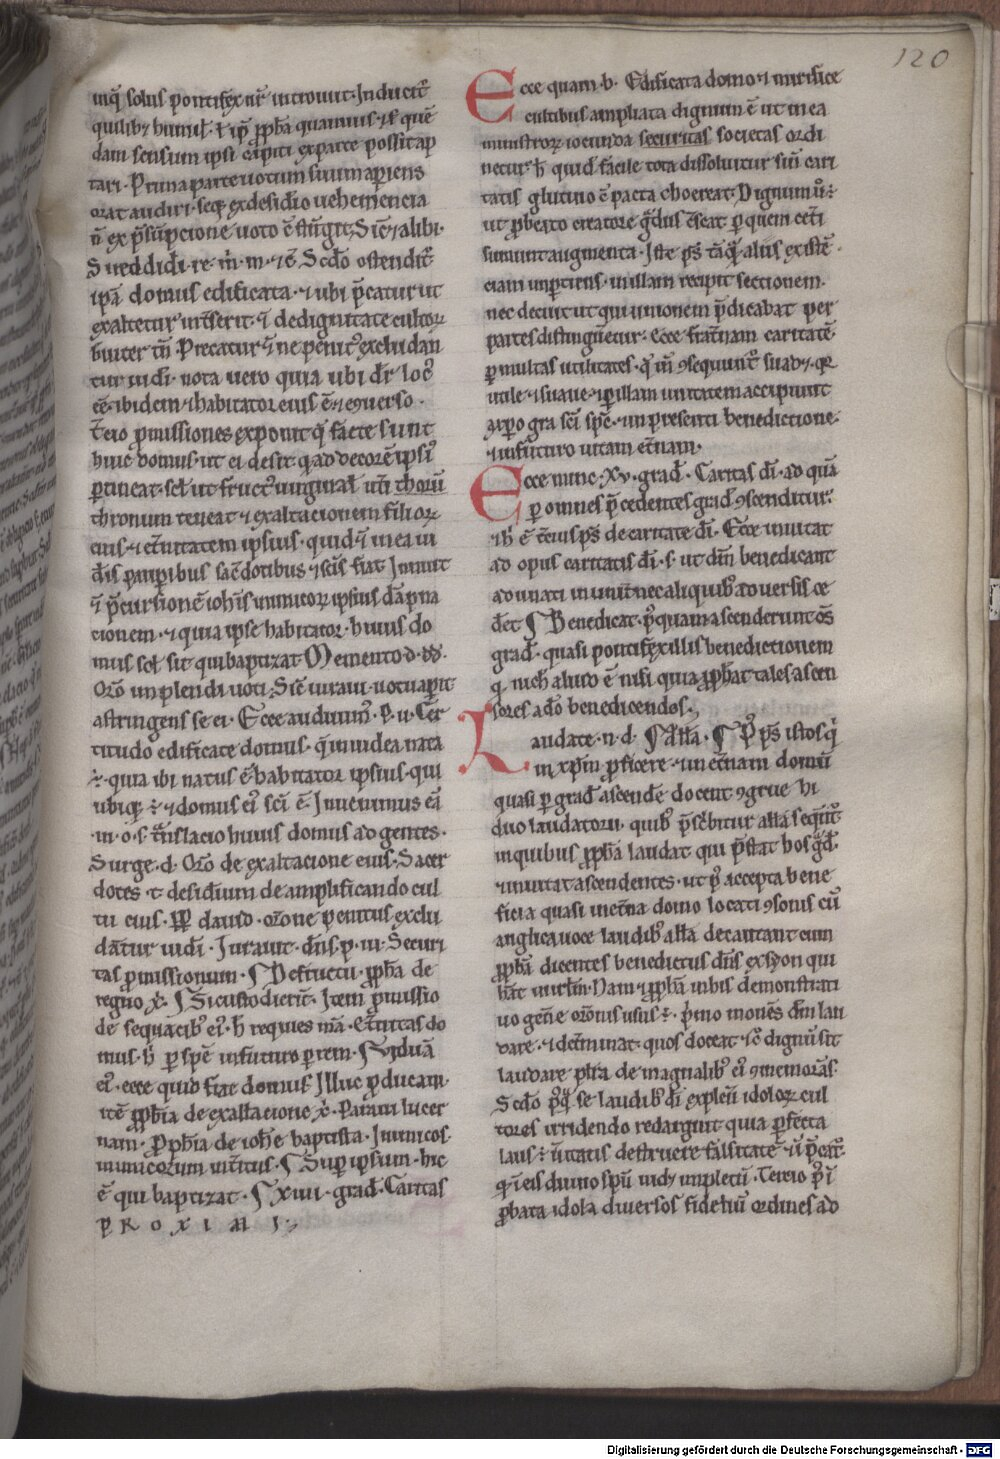 120
inq̄ solus pontifex nr̄ introiuit. Inducit᷑
quilibꝫ humil᷑. t̄ ip̄e ꝓph̄a quamuis
dam sensum ipsi capiti ex parte possit ap
tari. Prima parte uotum suum aperiens
orat audiri. seqͥ. ex desidio uehemencia
n̄ ex p̄sūpcione uoto ē Sic̄ ⁊ alibi.
Sueddidi. re. m̄. m. ⁊ c̄. Scd̄o ostendit᷑
ipā domus edificata. ⁊ ubi p̄catur ut
exaltetur int̄serit. ⁊ de dignitate cultoꝝ
buiter tn̄. Precatur ⁊ ne penitꝰ excludan
tur iudi. nota uero quia ubi dr̄ locꝰ
ēē. ibidem ⁊ habitator eius ē ⁊ ꝯuerso.
t̄cio ꝓmissiones exponit q̄ facte sunt
huic domui. ut ei desit qͦad decorē ipsiꝰ
ꝑtineat. scł ut fructꝰ uirginal᷑ un̄ thorū
thronum teneat ⁊ exaltacionem filioꝝ
eius. ⁊ et̄nitatem ipsius. quid ⁊ in ea ui
dꝫis pauperibus sac̄dotibus ⁊ scīs fiat. Innuit
⁊ p̄cursionē ioh̄is inimicoꝝ ipsius dāpna
tionem. ⁊ quia ipse habitator huius do
mus scł. sit qui baptizat. Memento. d. dd.
Oro inplendi uoti. Sic̄ iuraui. uotū apit
astringens se ei. Ecce audiuimꝰ. P. ii. Cer
titudo edificate domus. q̄ in iudea nata
ē. quia ibi natus ē habitator ipsius. qui
ubiqꝫ ē. ⁊ domus eiꝰ scī ē. Inuenimus eā
in. o. s. t̄nslacio huius domus ad gentes.
Surge. d. Oro de exaltacione eius. Sacer
dotes. t. desidium de amplificando cul
tu eius. Pp̄ dauid. or̄one penitus exclu
dāntur iudi. Iurauit. dn̄s. p. iii. Securi
tas ꝓmissionum. De fructu. ꝓph̄a de
regno x̄. Si custodierit᷑. Item ꝓmissio
de sequacibꝰ eiꝰ. h̄ requies m̄a. Et̄nitas do
mus. h̄ ꝑ spē. in futuro ꝑ rem. Viduā
eiꝰ. ecce quid fiat domui. Illuc ꝓducam.
itē ꝓph̄ia de exaltacione x̄. Paraui lucer
nam. Proph̄ia de ioh̄e baptista. Inimicos.
inimicorum int̄itus. Sup̄ ipsum. hic
ē qui baptizat. xiiii. grad᷑. Caritas
PROXIMI.
Ecce quam. b. Edificata domo ⁊ mirifice
cultibus ampliata dignum ē ut in ea
ministroꝝ iocunda securitas societas ordi
netur. h̄ quid facile tota dissoluitur sin̄ cari
tatis glutino ē pacta choereat. Dignum ūꝰ ē.
ut ꝓ beato creatore gͣdus c̄seat. ꝑ quem cet̄i
sumunt augmenta. Iste ps̄. tāqͣ alius existē
ciam inpertiens. in illam recipit sectionem.
nec decuit ut qui unionem p̄dicabat per
partes distingueretur. Ecce frat̄nam caritatē.
ꝑ multas utilitates. q̄ in̄ ꝯsequunt᷑ suadꝫ. qꝛ
utile ⁊ suaue. ⁊ ꝑ illam unitatem accipiunt
ꝯiꝑo gra scī sp̄c. ⁊ in presenti benedictione.
⁊ in futuro uitam et̄nam.
Ecce nunc. Xv. grad᷑. Caritas di. ad quā
ꝑ omnes p̄cedentes grad᷑ ꝯscenditur.
⁊ h̄ ē t̄cius ps̄. de caritate di. Ecce inuitat
ad opus caritatis di. s. ut dn̄m benedicant
adunati in unū. nec aliquibꝰ aduersis ce
det. Benedicat. pꝰquam ascenderunt oēs
grad᷑. quasi pontifex illis benedictionem
q. nich̄ aliud ē nisi quia ꝓph̄at tales ascen
sores ad̄o benedicendos.
Laudate. n. d. Alla. Pꝰ ps̄. istos q̄
in xp̄m ꝓficere ⁊ in et̄nam domū
quasi ꝑ grad᷑ ascende docent. ꝯgrue hi
duo laudatorii. quibꝰ p̄sc̄bitur alla sequūt᷑
in quibus ꝓph̄a laudat qui p̄stat hos gͣd᷑.
⁊ inuitat ascendentes. ut pꝰ accepta bene
ficia quasi in et̄na domo locati ꝯsonis cū
anglica uoce laudibꝰ alla decantant cum
ꝓph̄a dicentes benedictus dn̄s ex syon qui
h̄at in irl̄m. Nam ⁊ ꝓph̄a in his demonstrati
uo gen̄e or̄onis usus ē. p̄mo monēs dn̄m lau
dare. ⁊ det̄minat. quos doceat ⁊ sic̄ dignū sit
laudare plura de magnalibꝰ eiꝰ ꝯmemorās.
Scd̄o pꝰqͣ se laudibꝰ di expleuit idoloꝝ cul
tores irridendo redarguit quia ꝑfecta
laus ē ūitatis destruere falsitatē. n̄ p̄cat᷑.
q. ⁊ eis diuino spū uidꝫ impletū. Tercio pꝰ ī
ꝓbata idola diuersos fideliū ordines ad
Digitalisierung gefördert durch die Deutsche Forschungsgemeinschaft - DFG